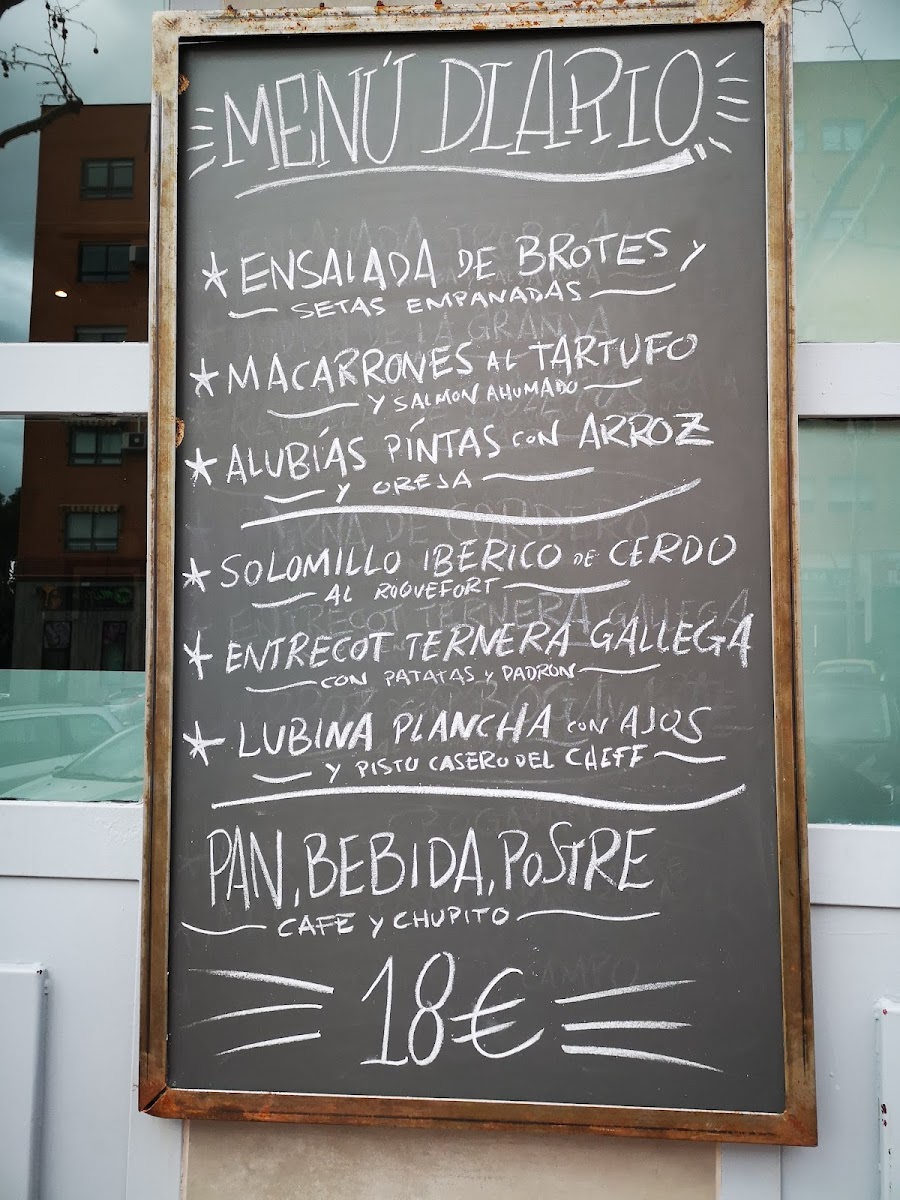 MENÚ DIARIO
ENSALADA DE BROTES Y
SETAS EMPANADAS
MACARRONES AL TARTUFO
Y SALMON AHUMADO
ALUBÍAS PÍNTAS CON ARROZ
Y OREJA
SOLOMILLO IBERICO DE CERDO
AL ROQUEFORT
ENTRECOT TERNERA GALLEGA
CON PATATAS Y PADRÓN
LUBINA PLANCHA CON AJOS
Y PISTO CASERO DEL CHEFF
PAN, BEBIDA, POSTRE
CAFE Y CHUPITO
18€